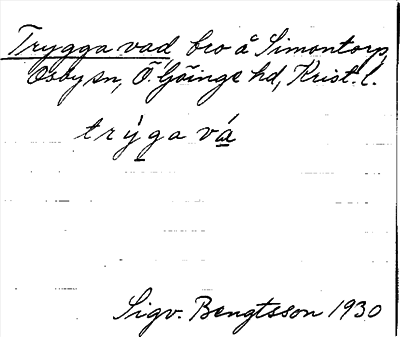 Trygga vad bro å Simontorp,
Osby sn, Ö. Göinge hd, Krist. l.
trýga vá
Sigv. Bengtsson 1930